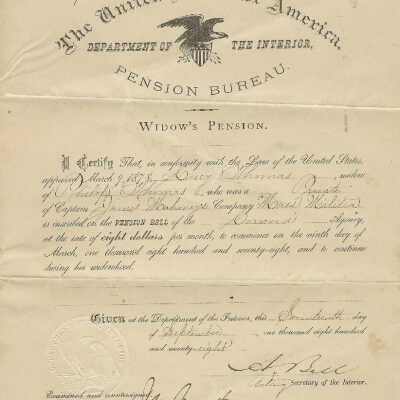 The United States of America,
DEPARTMENT OF THE INTERIOR,
PENSION BUREAU.
WIDOW'S PENSION.
I Certify That, in conformity with the Law of the United States,
approved March 9, 1878, Lucy Thomas, widow
of Thomas who was a Private
of Captain Company Mass Militia
is inscribed on the PENSION ROLL of the Concord Agency,
at the rate of eight dollars per month, to commence on the ninth day of
March, one thousand eight hundred and seventy-eight, and to continue
during her widowhood.
Given at the Department of the Interior, this Seventeenth day
of September one thousand eight hundred
and seventy-eight.
A. Bell
Acting Secretary of the Interior.
Examined and countersigned,